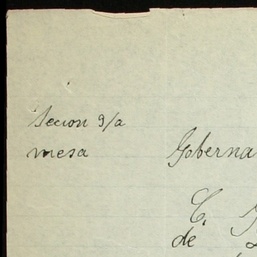 Secion 9/a
mesa Goberna
C.
de